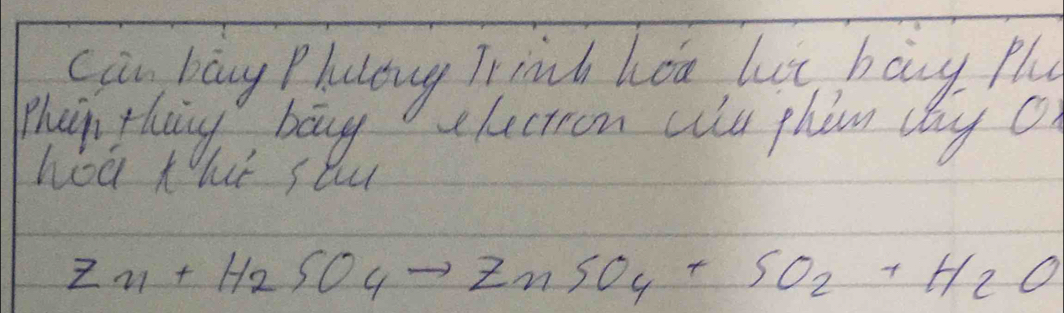 Cân bằng Phương Trình hóa học bằng
Pháp thăng bằng electron của phản ứng
hóa khử sau
Zn + H2SO4 → ZnSO4 + SO2 + H2O